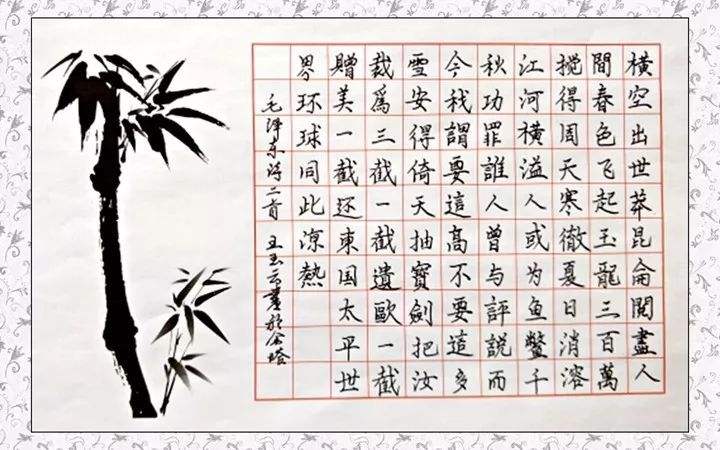 横空出世莽昆侖閲盡人
間春色飞起玉龍三百萬
搅得周天寒徹夏日消溶
江河横溢人或为鱼鳖千
秋功罪誰人曾与評説而
今我謂要這高不要這多
雪安得倚天抽寶劍把汝
裁爲三截一截遺歐一截
贈美一截还東国太平世
界环球同此凉熱
毛泽东诗二首 王玉云書於金塔